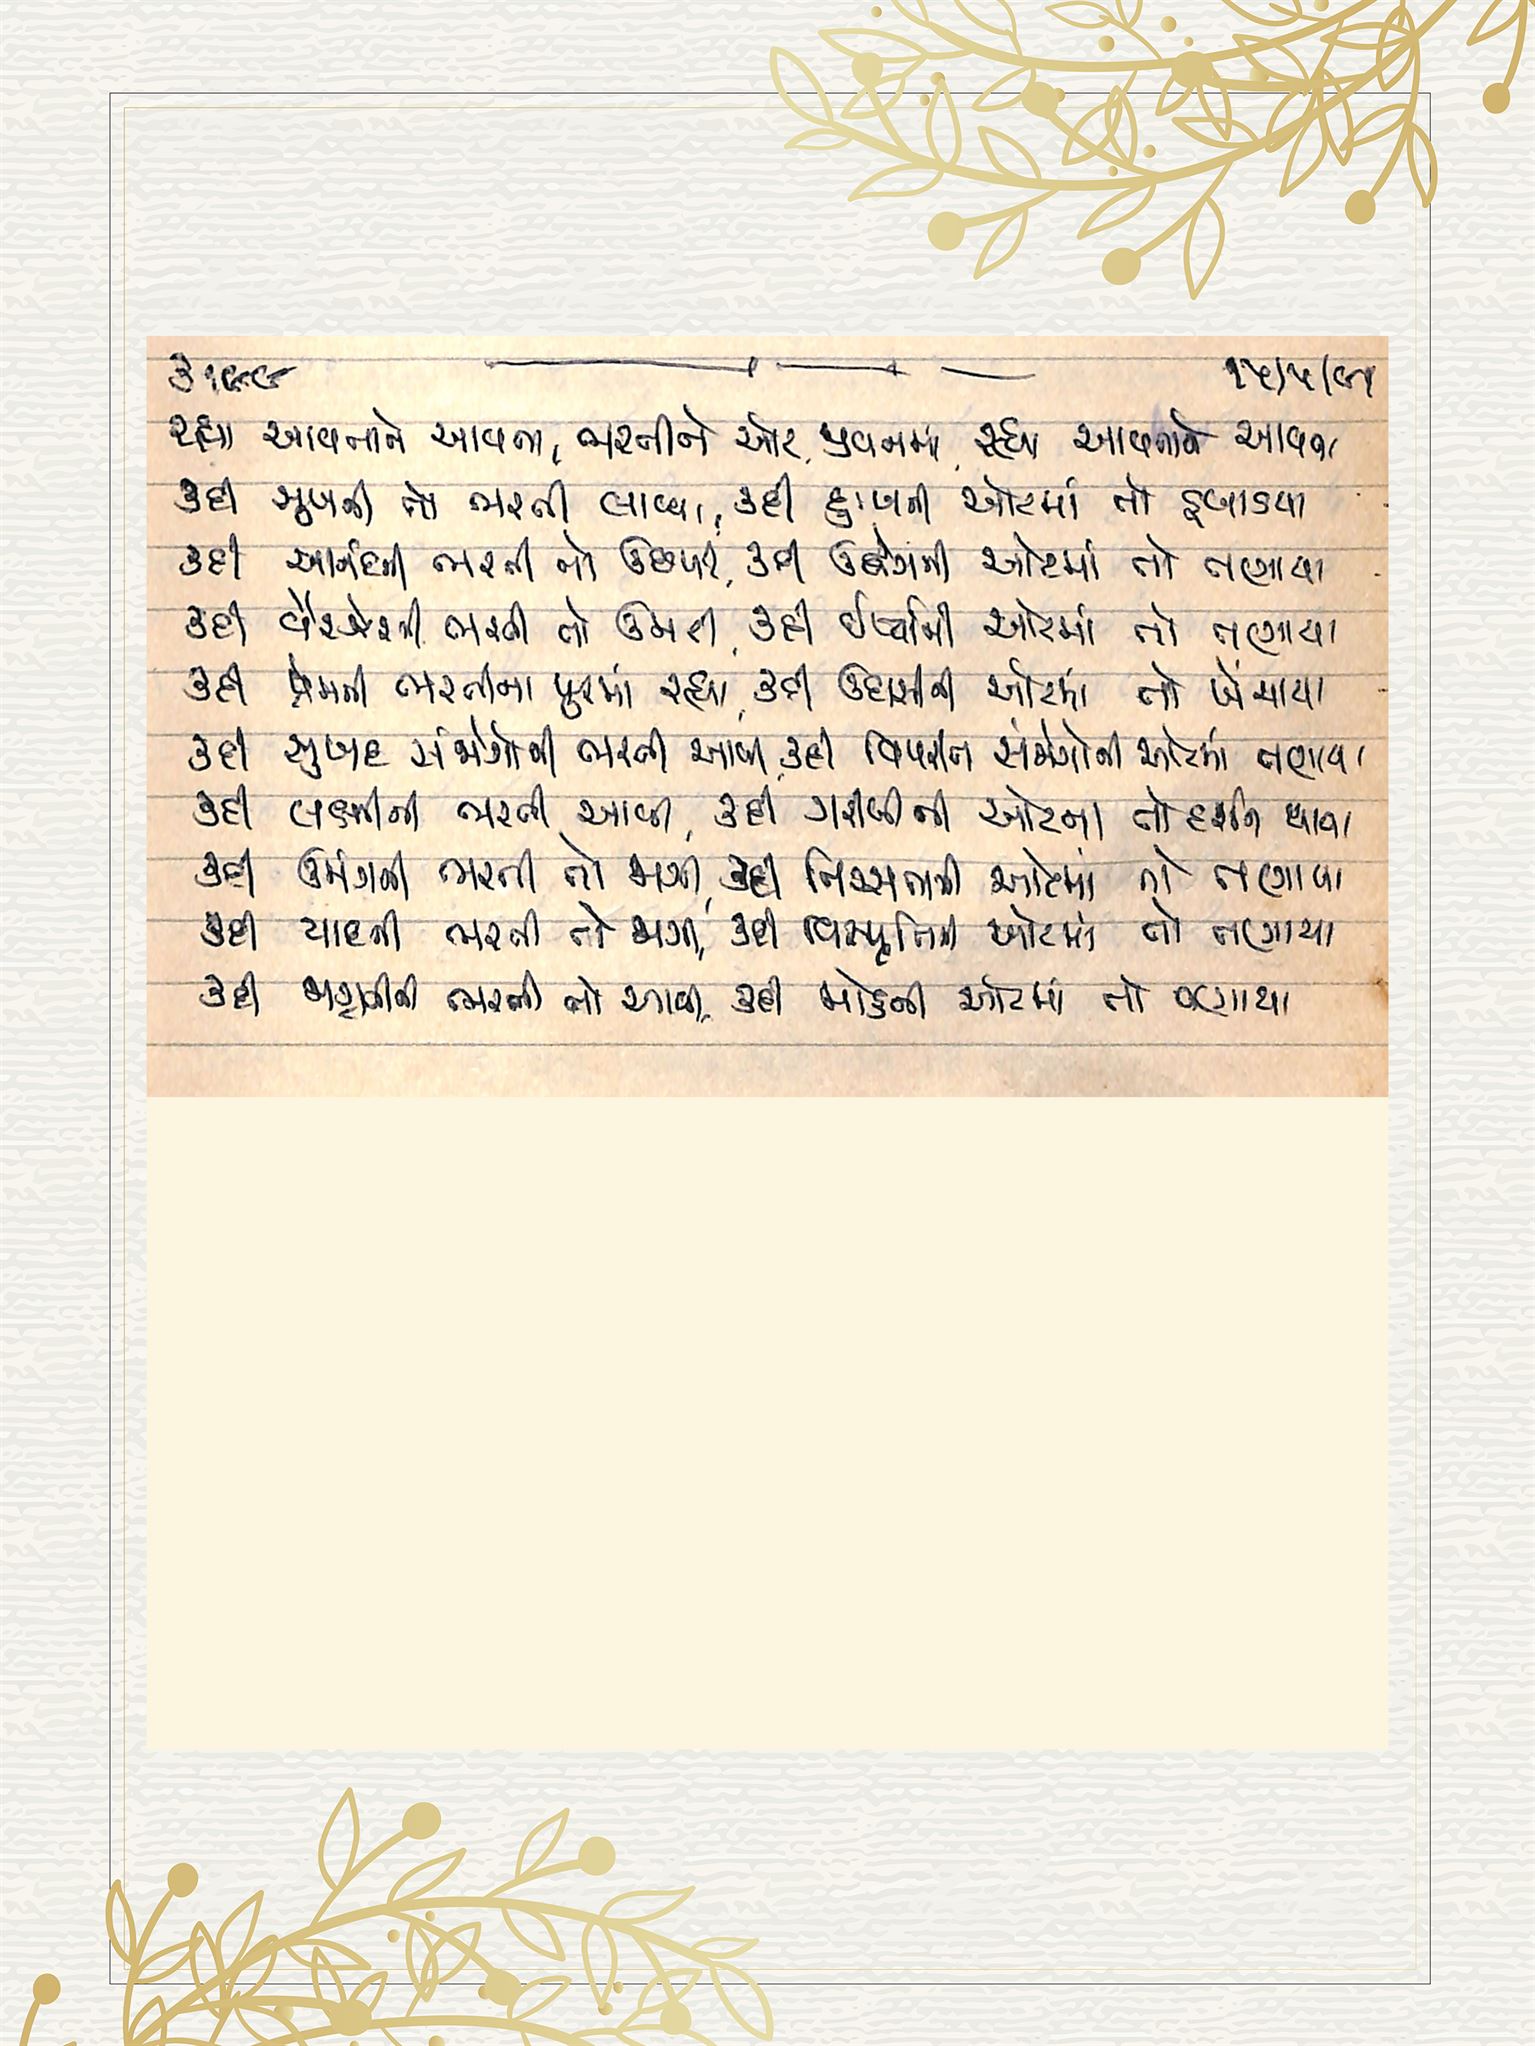 ૩૧૯૯ ૧૫/૫/૯૧
રહ્યા આવતાને આવતા, ભરતીને ઓટ, જીવનમાં, રહ્યા આવતાને આવતા
કદી સુખની તો ભરતી લાવ્યા, કદી દુઃખની ઓટમાં તો ડુબાડયા
કદી આનંદની ભરતી તો ઉછળી, કદી ઉદ્વેગની ઓટમાં તો તણાયા
કદી વૈરઝેરની ભરતી તો ઉમટી, કદી ઈર્ષ્યાની ઓટમાં તો તણાયા
કદી પ્રેમની ભરતીના પુરમાં રહ્યા, કદી ઉદાસીની ઓટમાં તો ખેંચાયા
કદી સુખદ સંજોગોની ભરતી આવી, કદી વિપરીત સંજોગોની ઓટમાં તણાયા
કદી લક્ષ્મીની ભરતી આવી, કદી ગરીબીની ઓટના તો દર્શન થાયા
કદી ઉમંગની ભરતી તો જાગી, કદી નિરાશાની ઓટમાં તો તણાયા
કદી યાદની ભરતી તો જાગી, કદી વિસ્મૃતિની ઓટમાં તો તણાયા
કદી જાગૃતીની ભરતી તો આવી, કદી ઓટમાં તો તણાયા